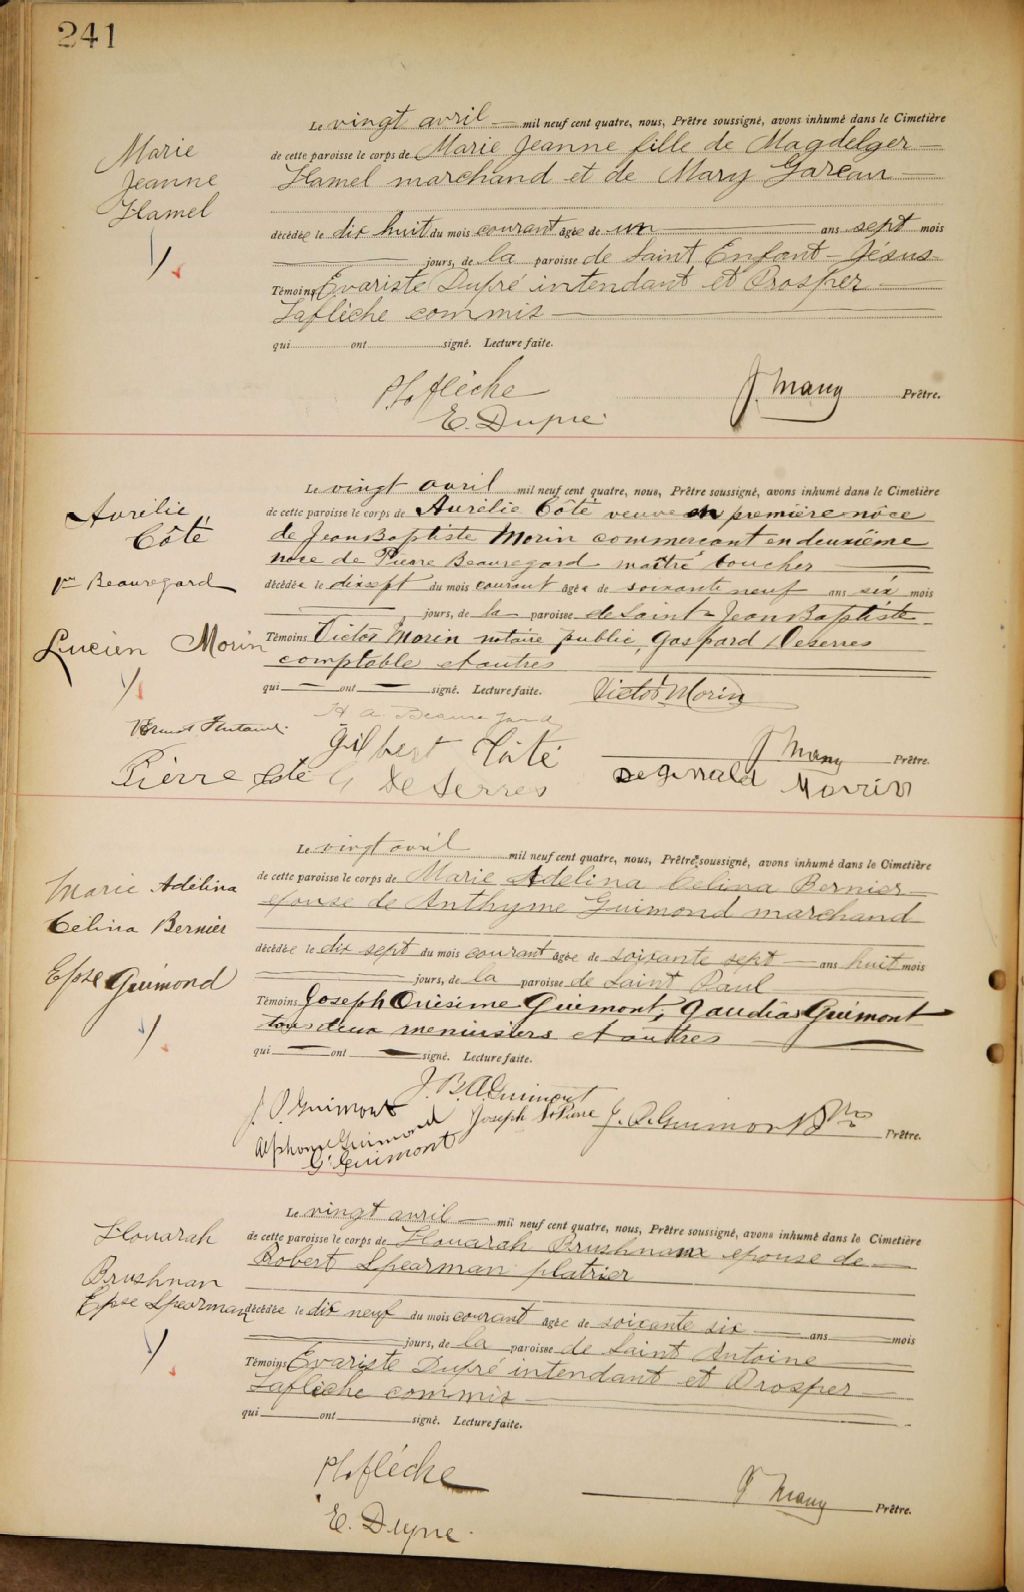 241
Le vingt avril mil neuf cent quatre, nous, Prêtre soussigné, avons inhumé dans le Cimetière
Marie
Jeanne
Hamel
de cette paroisse le corps de Marie Jeanne fille de Magdelger
Hamel marchand et de Mary Gareau
décédée le dix huit du mois courant âgée de un ans sept mois
jours, de la paroisse de Saint Enfant-Jésus
Témoins Evariste Dupré intendant et Prosper
Laflèche commis
qui ont signé. Lecture faite.
P Laflèche
J. Many Prêtre.
E. Dupré
Le vingt avril mil neuf cent quatre, nous, Prêtre soussigné, avons inhumé dans le Cimetière
Aurélie
Côté
de cette paroisse le corps de Aurélie Côté veuve en première nôce
de Jean Baptiste Morin commerçant en deuxième
noce de Pierre Beauregard maître boucher
Beauregard
décédée le dix sept du mois courant âgée de soixante neuf ans six mois
jours, de la paroisse de Saint-Jean Baptiste
Lucien Morin
Témoins Victor Morin notaire public, Gaspard Deserres
comptable et autres
qui ont signé. Lecture faite.
Victor Morin
H A Beauregard
Gilbert Côté
J. Many Prêtre.
Pierre Coté
G DeSerres
Morin
Le vingt avril mil neuf cent quatre, nous, Prêtre soussigné, avons inhumé dans le Cimetière
Marie Adélina
Célina Bernier
Epse Guimond
de cette paroisse le corps de Marie Adelina Celina Bernier
epouse de Anthyme Guimond marchand
décédée le dix sept du mois courant âgée de soixante sept ans huit mois
jours, de la paroisse de Saint Paul
Témoins Joseph Onésime Guimont, Gaudias Guimont
tous deux menuisiers et autres
qui ont signé. Lecture faite.
J. B. A. Guimont
J. O. Guimont
Joseph St Pierre
J. A. Guimont Ptre
Prêtre.
Alphonse Guimond
G. Guimont
Le vingt avril mil neuf cent quatre, nous, Prêtre soussigné, avons inhumé dans le Cimetière
Houarah
Brushnan
Epse Spearman
de cette paroisse le corps de Houarah Brushnan epouse de
Robert Spearman platrier
décédée le dix neuf du mois courant âgée de soixante six ans mois
jours, de la paroisse de Saint Antoine
Témoins Evariste Dupré intendant et Prosper
Laflèche commis
qui ont signé. Lecture faite.
P Laflèche
J. Many Prêtre.
E. Dupre